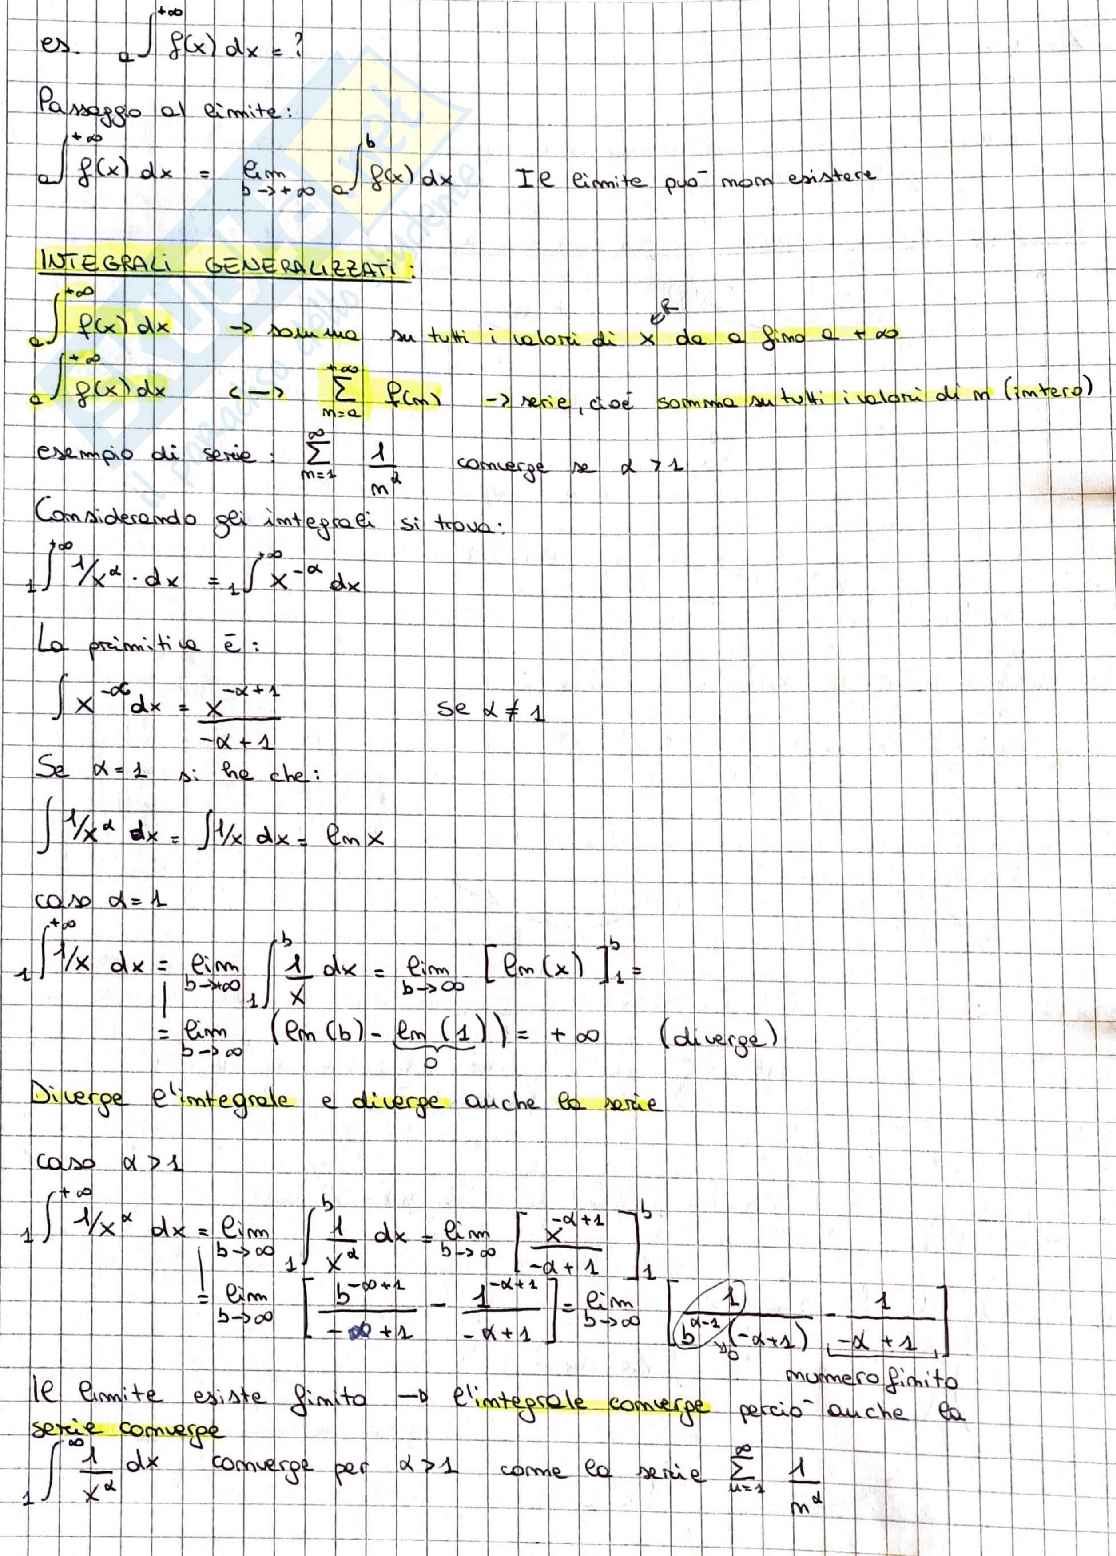 es. a∫^{+∞} f(x) dx = ?
Passaggio al limite:
a∫^{+∞} f(x) dx = lim_{b→+∞} a∫^{b} f(x) dx Il limite può non esistere
INTEGRALI GENERALIZZATI:
a∫^{+∞} f(x) dx → somma su tutti i valori di x ∈R da a fino a +∞
a∫^{+∞} f(x) dx <-> ∑_{n=a}^{+∞} f(n) → serie, cioè somma su tutti i valori di n (intero)
esempio di serie: ∑_{n=1}^{∞} 1/n^α converge se α > 1
Considerando gli integrali si trova:
1∫^{+∞} 1/x^α · dx = 1∫^{+∞} x^{-α} dx
La primitiva è:
∫ x^{-α} dx = x^{-α+1}/(-α+1) se α ≠ 1
Se α = 1 si ha che:
∫ 1/x^α dx = ∫ 1/x dx = ln x
caso α = 1
1∫^{+∞} 1/x dx = lim_{b→+∞} 1∫^{b} 1/x dx = lim_{b→∞} [ln(x)]_1^b =
= lim_{b→∞} (ln(b) - ln(1)) = +∞ (diverge)
0
Diverge l'integrale e diverge anche la serie
caso α > 1
1∫^{+∞} 1/x^α dx = lim_{b→∞} 1∫^{b} 1/x^α dx = lim_{b→∞} [x^{-α+1}/(-α+1)]_1^b
= lim_{b→∞} [b^{-α+1}/(-α+1) - 1^{-α+1}/(-α+1)] = lim_{b→∞} [1/(b^{α-1}(-α+1)) - 1/(-α+1)]
→0 numero finito
Il limite esiste finito → l'integrale converge perciò anche la
serie converge
1∫^{∞} 1/x^α dx converge per α > 1 come la serie ∑_{n=1}^{∞} 1/n^α